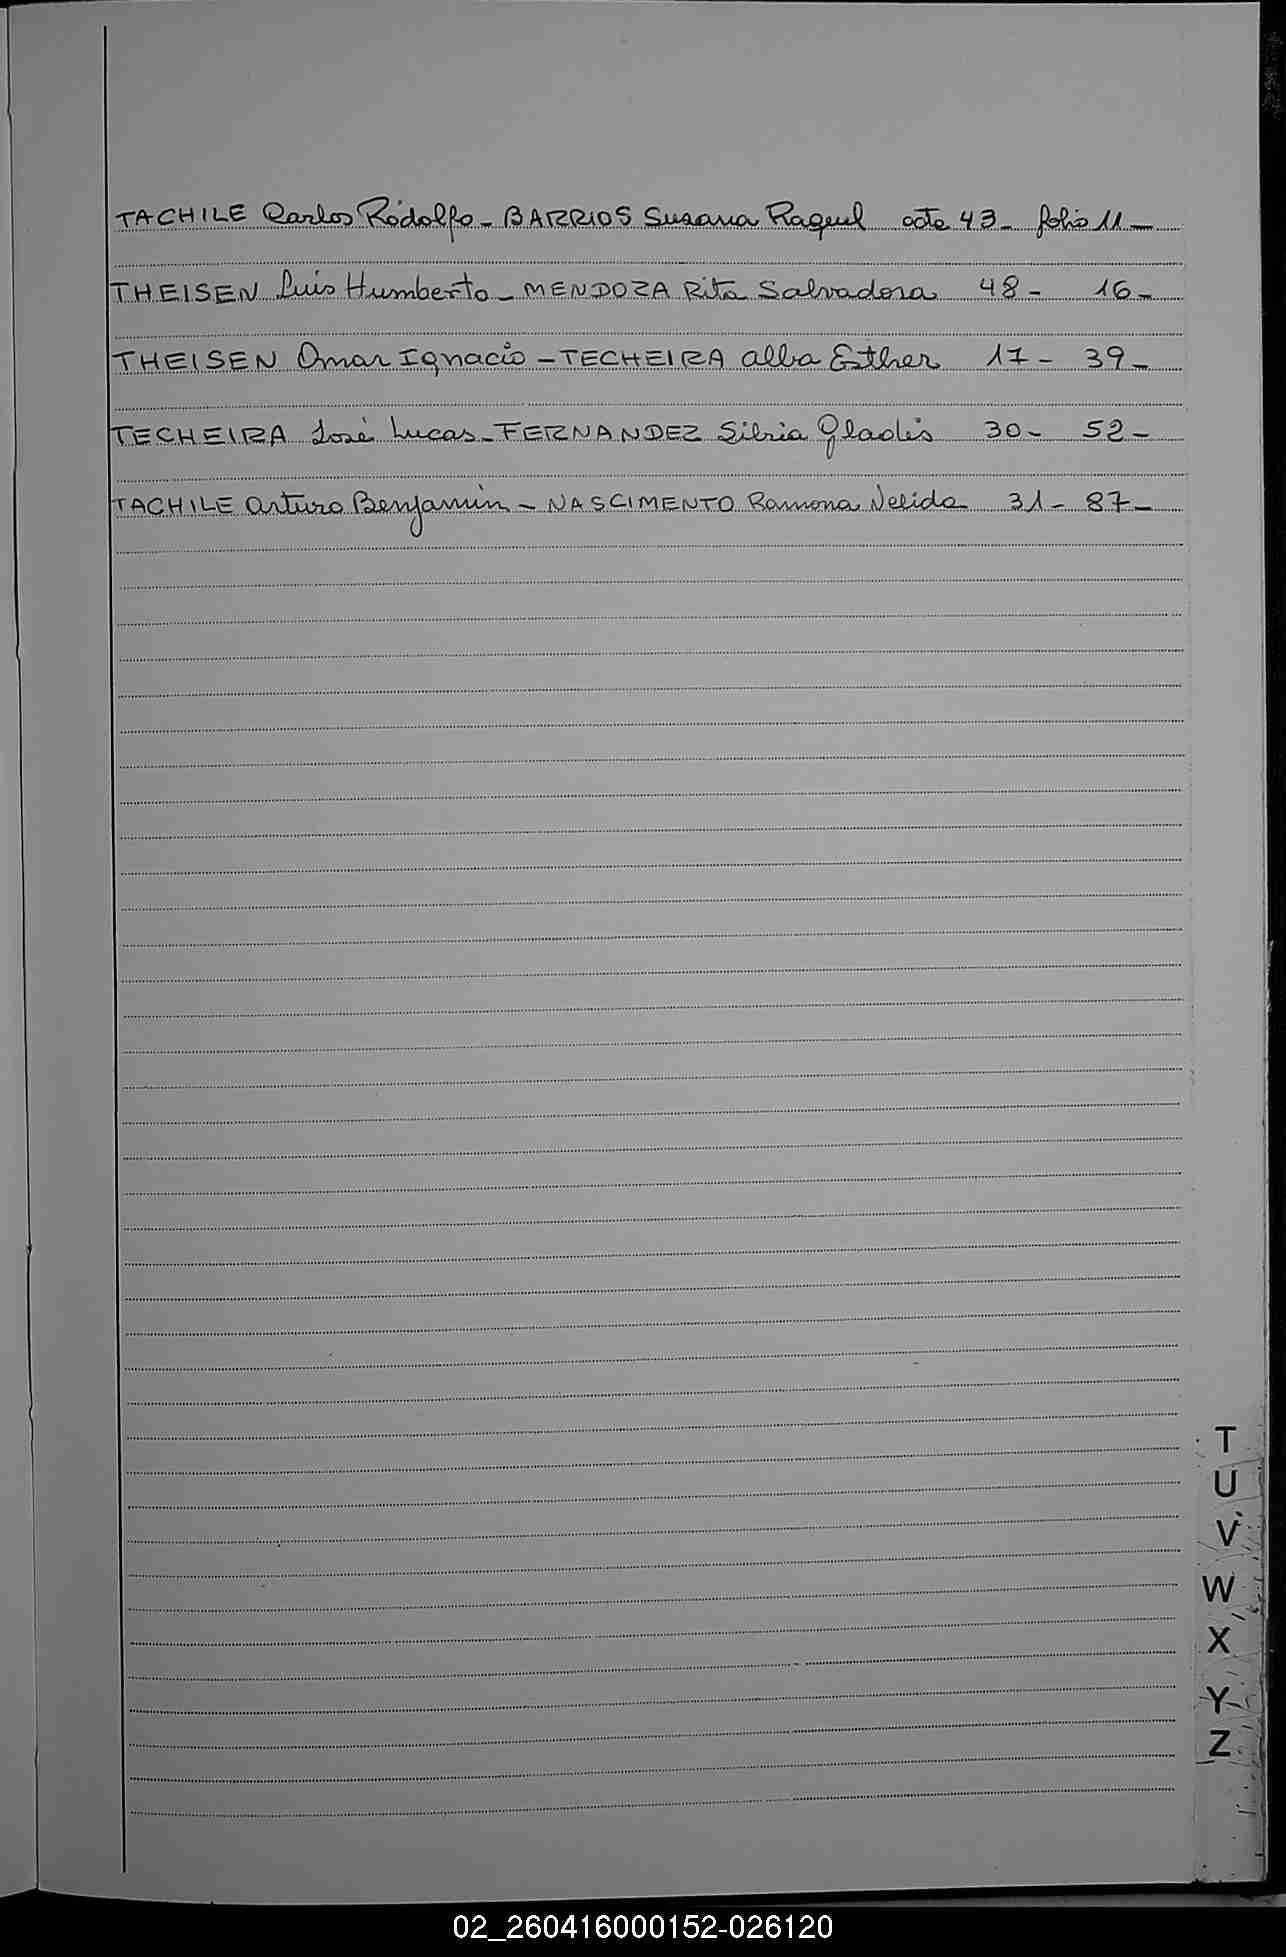 TACHILE Carlos Rodolfo - BARRIOS Susana Raquel acta 43 - folio 11 -
THEISEN Luis Humberto - MENDOZA Rita Salvadora 48 - 16 -
THEISEN Omar Ignacio - TECHEIRA Alba Esther 17 - 39 -
TECHEIRA José Lucas - FERNANDEZ Silvia Gladis 30 - 52 -
TACHILE Arturo Benjamin - NASCIMENTO Ramona Nelida 31 - 87 -
T
U
V
W
X
Y
Z
02_260416000152-026120